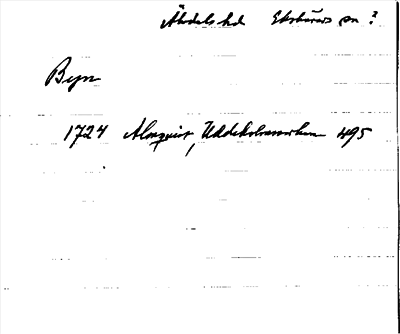 Åhdals hd Ekshärads sn ?
Byn
1724 Almquist, Uddeholmsverken 495